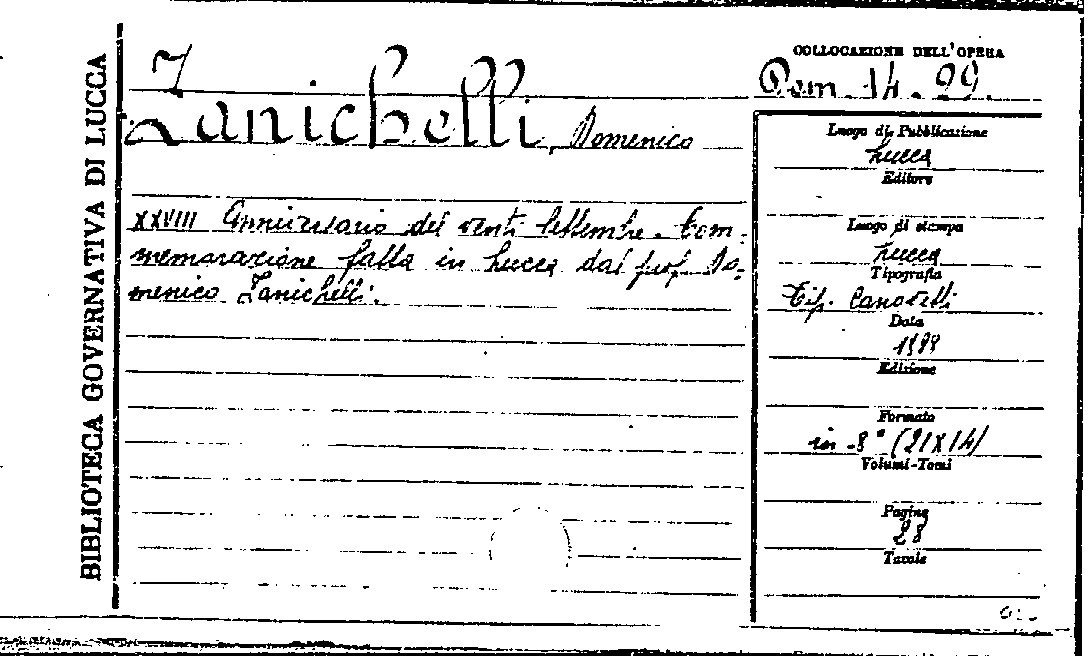 BIBLIOTECA GOVERNATIVA DI LUCCA
Z
Zanichelli, Domenico
XXVIII Anniversario del venti Settembre. Com-
memorazione fatta in Lucca dal prof. Do-
menico Zanichelli.
COLLOCAZIONE DELL'OPERA
14. 99.
Luogo di Pubblicazione
Lucca
Editore
Luogo di stampa
Lucca
Tipografia
Tip. Canovetti
Data
Edizione
Formato
in-8° (21X14)
Volumi-Tomi
Pagine
28
Tavole